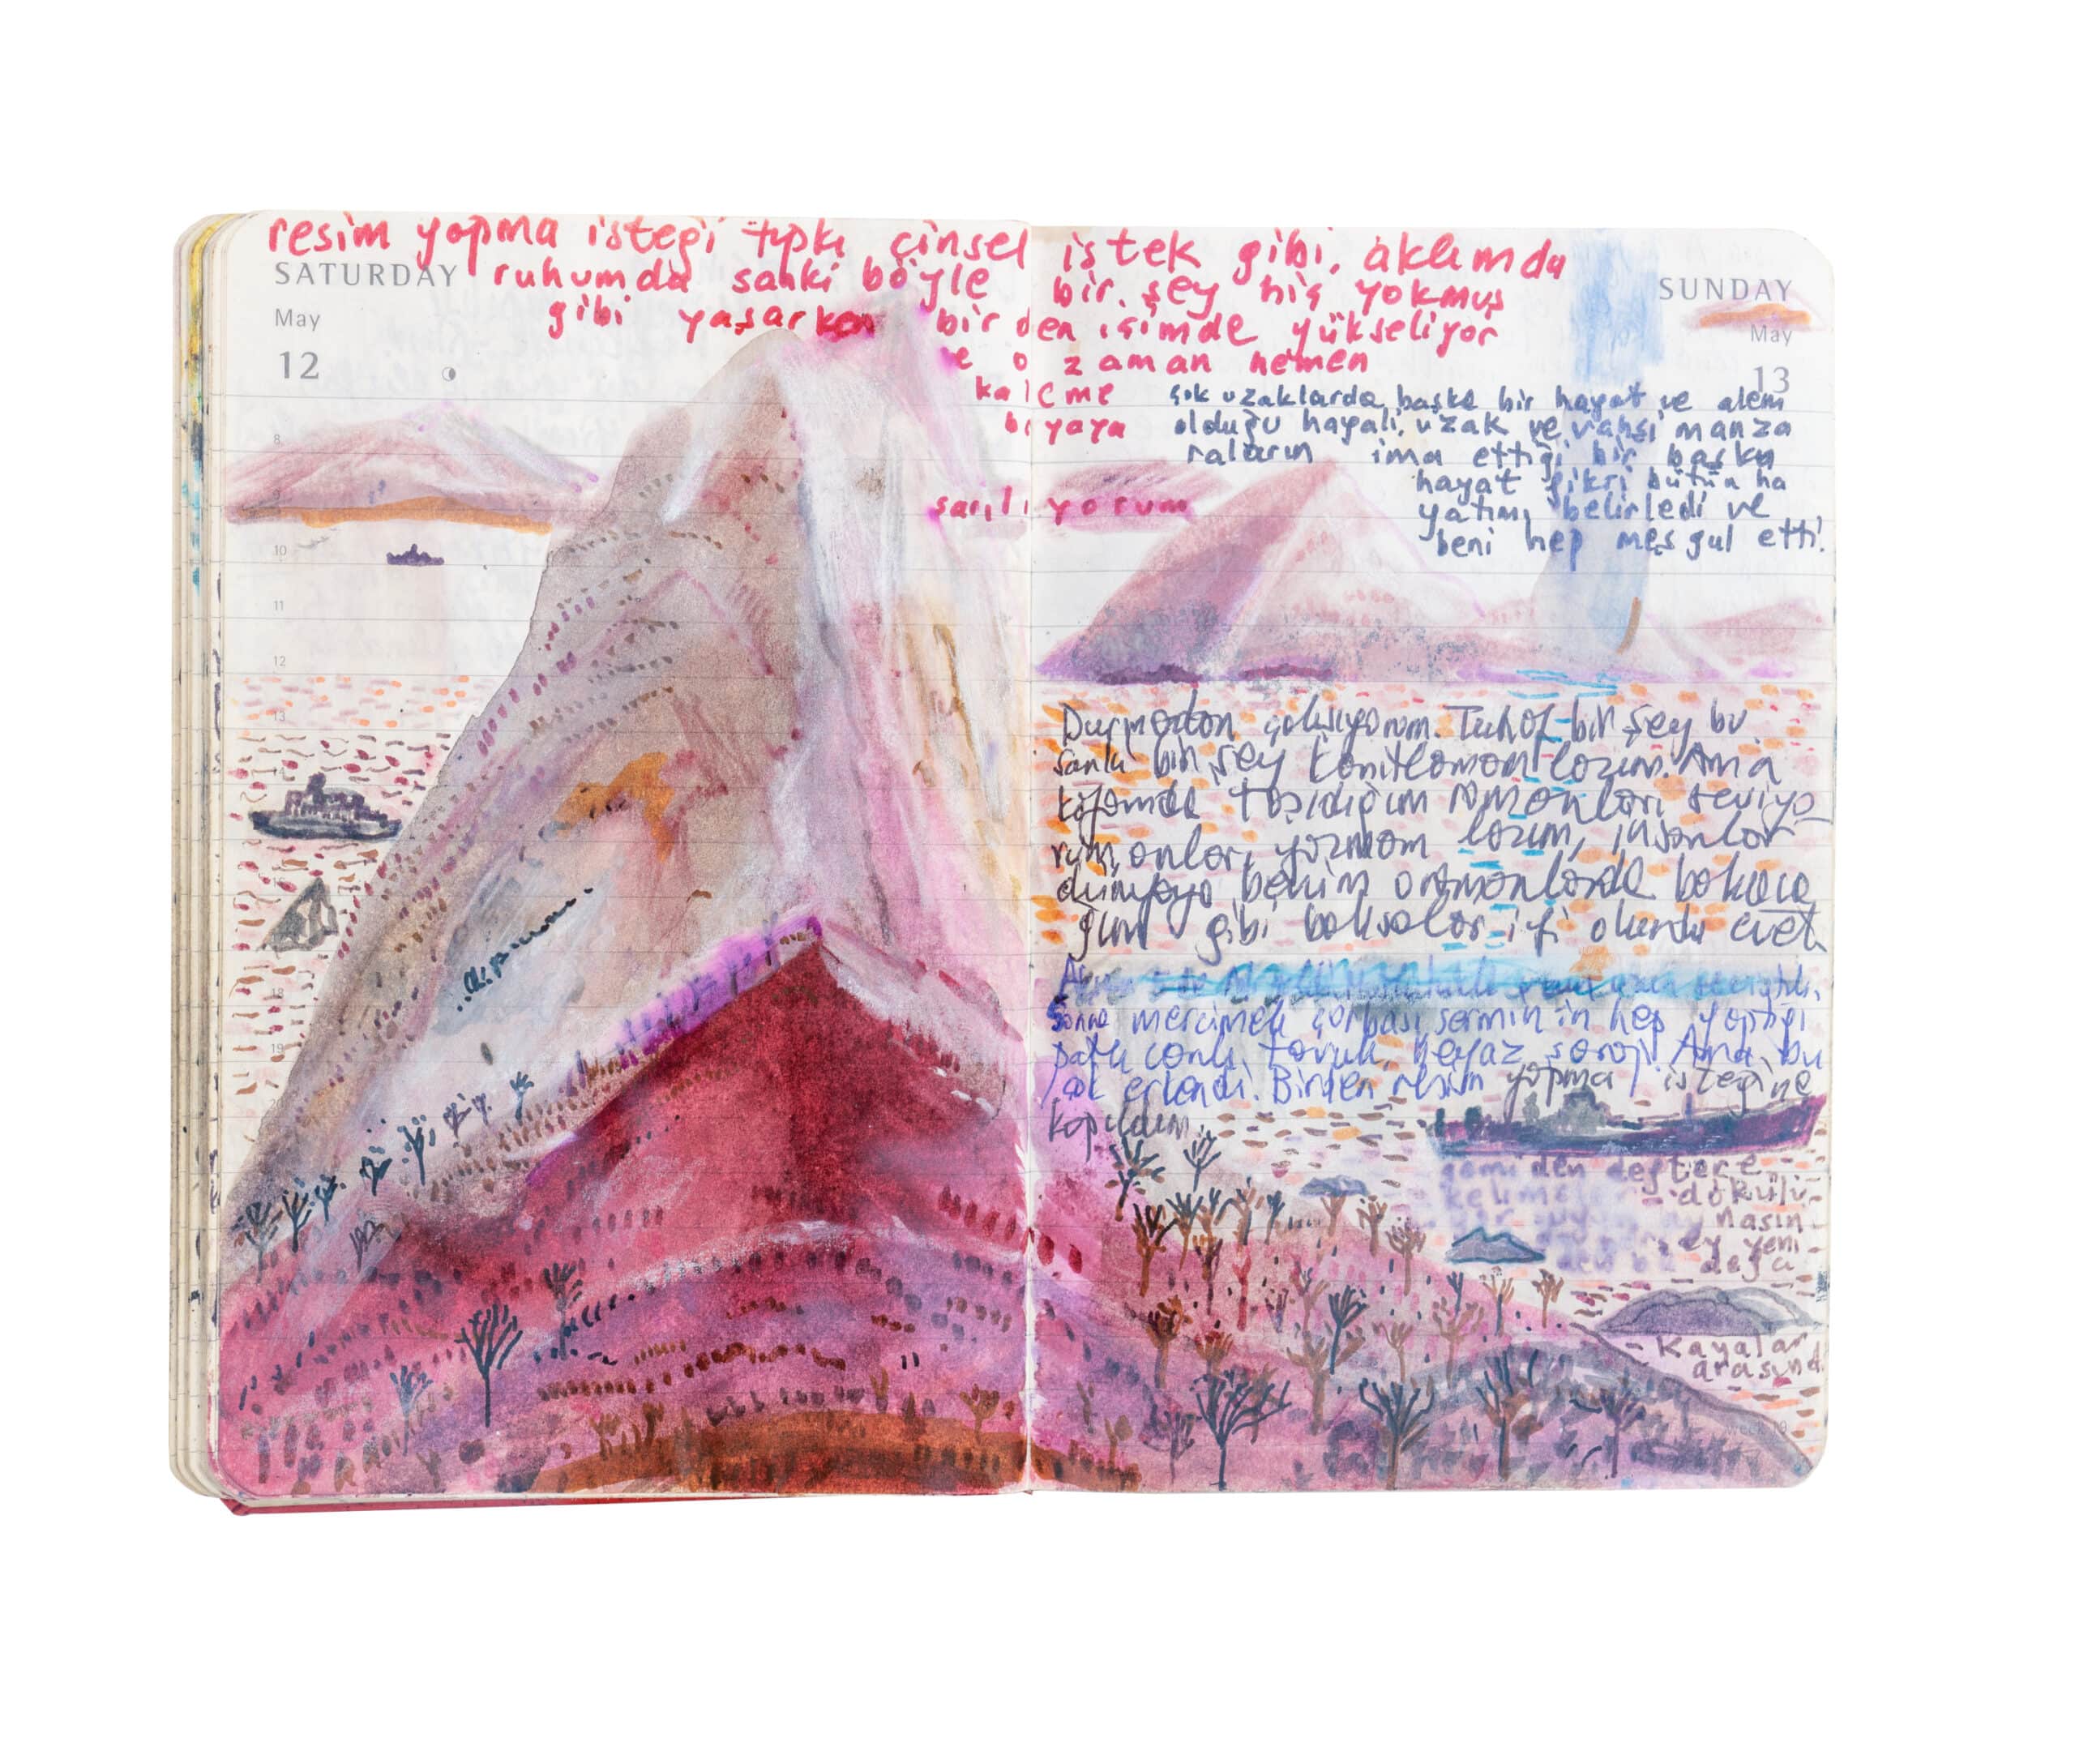 resim yapma isteği tıpkı cinsel istek gibi, aklımda
SATURDAY ruhumda sanki böyle bir şey hiç yokmuş
gibi yaşarken birden içimde yükseliyor
ve o zaman hemen
kaleme
boyaya
sarılıyorum
May
12
8
9
10
11
12
13
14
18
19
SUNDAY
May
13
çok uzaklarda başka bir hayat ve alem
olduğu hayali, uzak ve vahşi manza
raların ima ettiği bir başka
hayat fikri bütün ha
yatımı belirledi ve
beni hep meşgul etti.
Durmadan çalışıyorum. Tuhaf bir şey bu
sanki bir şey kanıtlamam lazım. Ama
kafamda taşıdığım romanları seviyo
rum, onları yazmam lazım, insanlar
dünyaya benim romanlarda bakaca
ğım gibi baksalar iyi olurdu evet
Sonra mercimek çorbası, Şermin'in hep yaptığı
patlıcanlı tavuk, beyaz şarap! Ama bu
çok erkendi. Birden resim yapma isteğine
kapıldım.
gemiden deftere
kelimeler dökülü
nasın
ey yeni
defa
Kayalar
arasınd